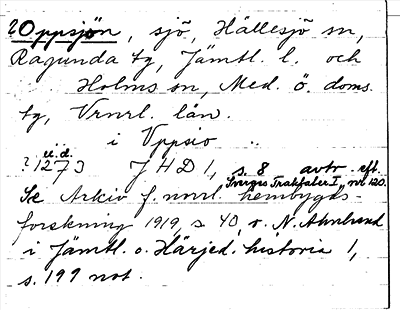 ?Oppsjön, sjö, Hällesjö sn,
Ragunda tg, Jämtl. l. och
Holms sn, Med. ö. doms.
tg, Vrnrl. län.
i Vppsio
u. d.
? 1273 JHD 1, s. 8 avtr. eft.
Sveriges Traktater I, nr 120.
Se Arkiv f. norrl. hembygds-
forskning 1919, s. 40, o. N. Ahnlund
i Jämtl. o. Härjed. historia 1,
s. 199 not.